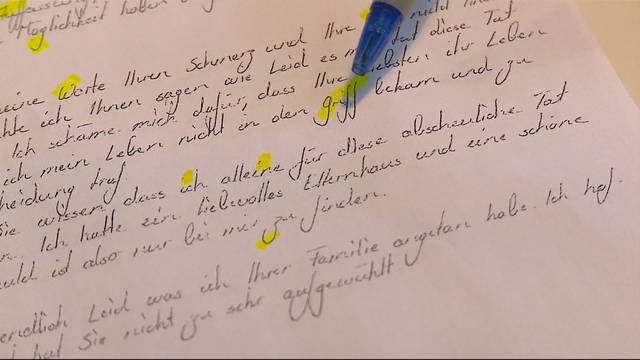 Möglichkeit haben
eine Worte Ihren Schmerz und Ihre nicht
ich Ihnen sagen wie Leid es mir tut diese Tat
Ich schäme mich dafür, dass Ihre liebsten ihr Leben
ich mein Leben nicht in den griff bekam und zu
heidung traf.
Sie wissen, dass ich alleine für diese abscheuliche Tat
Ich hatte ein liebvolles Elternhaus und eine schöne
uld ist also nur bei mir zu finden.
endlich Leid was ich Ihrer Familie angetan habe. Ich hof
hat Sie nicht zu sehr aufgewühlt.